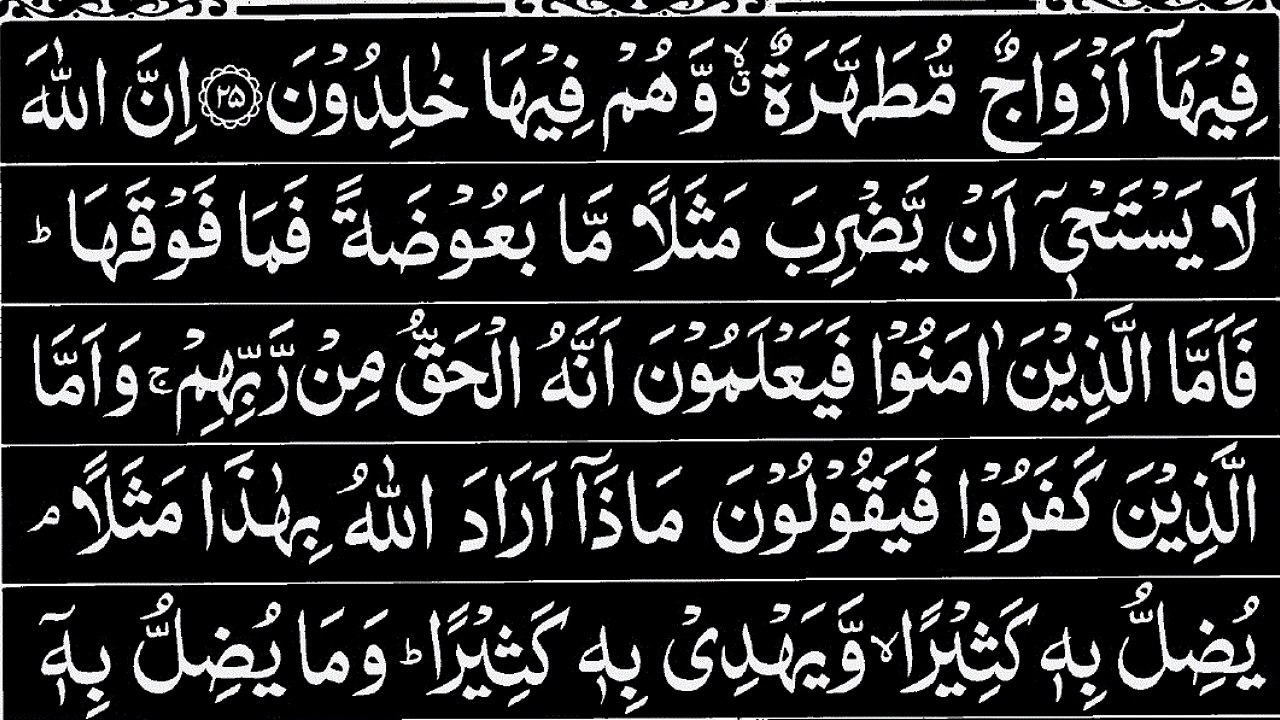 فِيْهَاۤ اَزْوَاجٌ مُّطَهَّرَةٌ ۙۗ وَّهُمْ فِيْهَا خٰلِدُوْنَ ۝۲۵ اِنَّ اللّٰهَ
لَا يَسْتَحْيٖۤ اَنْ يَّضْرِبَ مَثَلًا مَّا بَعُوْضَةً فَمَا فَوْقَهَا ؕ
فَاَمَّا الَّذِيْنَ اٰمَنُوْا فَيَعْلَمُوْنَ اَنَّهُ الْحَقُّ مِنْ رَّبِّهِمْ ۚ وَاَمَّا
الَّذِيْنَ كَفَرُوْا فَيَقُوْلُوْنَ مَاذَاۤ اَرَادَ اللّٰهُ بِهٰذَا مَثَلًا ۘ
يُضِلُّ بِهٖ كَثِيْرًا ۙ وَّيَهْدِيْ بِهٖ كَثِيْرًا ؕ وَمَا يُضِلُّ بِهٖۤ